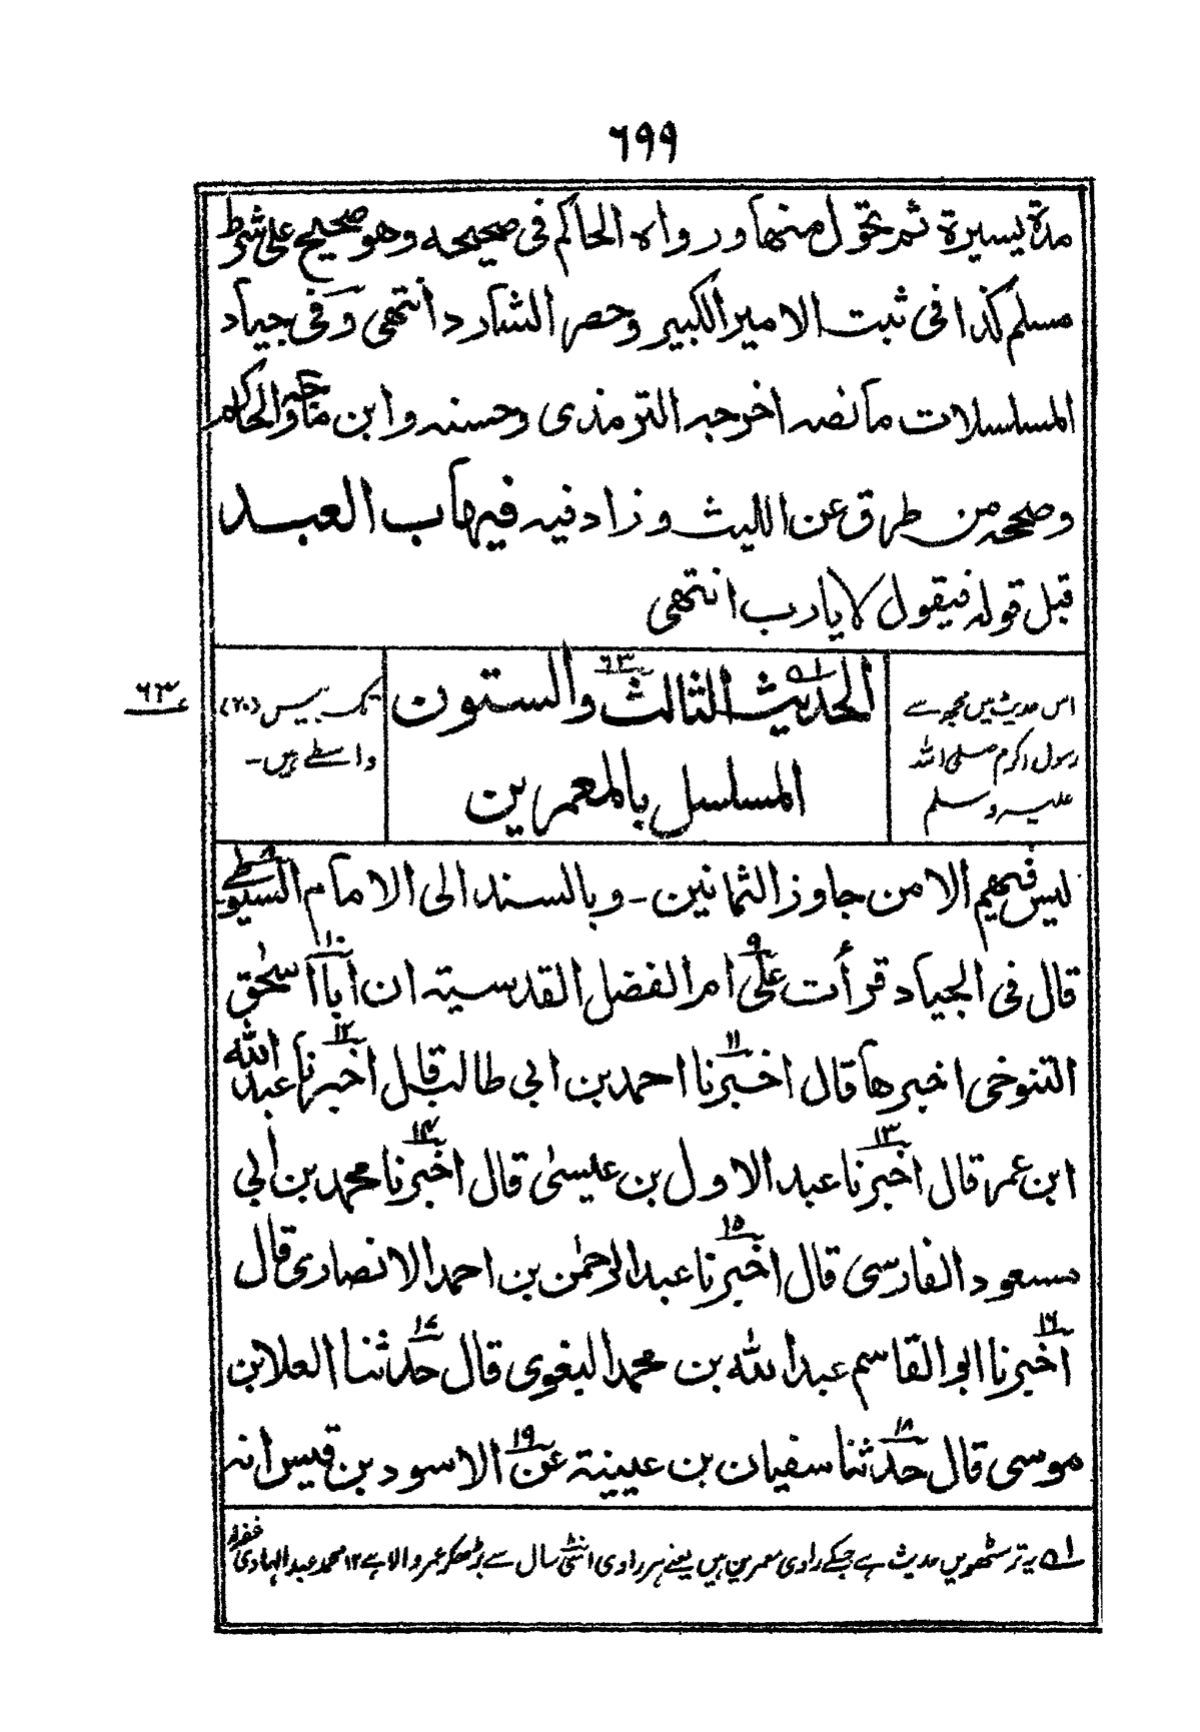 ٦٩٩
مدة يسيرة ثم تحول منها ورواه الحاكم فى صحيحه وهو صحيح على شرط
مسلم كذا فى ثبت الامير الكبير وحصر الشارد أنتهى وفى جياد
المسلسلات ما نصه اخرجه الترمذى وحسنه وابن ماجه والحاكم
وصححه من طرق عن الليث وزاد فيه فيهاب العبد
قبل قوله فيقول لا يارب انتهى
اس حدیث میں مجھ سے
رسول اکرم صلی اللہ
علیہ وسلم
الحديث الثالث والستون
٦٣
المسلسل بالمعمرين
تک بیس (۲۰)
واسطے ہیں۔
٦٣
ليس فيهم الا من جاوز الثمانين - وبالسند الى الامام السيوطي
٨
قال فى الجياد قرأت على ام الفضل القدسية ان أبا اسحٰق
٩ ١٠
التنوخى اخبرها قال اخبرنا احمد بن ابى طالب قال اخبرنا عبد الله
١١ ١٢
ابن عمر قال اخبرنا عبد الاول بن عيسىٰ قال اخبرنا محمد بن أبى
١٣ ١٤
مسعود الفارسى قال اخبرنا عبد الرحمٰن بن احمد الانصارى قال
١٥
اخبرنا ابو القاسم عبد الله بن محمد البغوى قال حدثنا العلا بن
١٦ ١٧
موسى قال حدثنا سفيان بن عيينة عن الاسود بن قيس انه
١٨ ١٩
١ه یہ ترسٹھویں حدیث ہے جسکے راوی معمرین ہیں یعنے ہر راوی اسّی سال سے بڑھکر عمر والا ہے ۱۲ محمد عبد الہادی غفرلہ